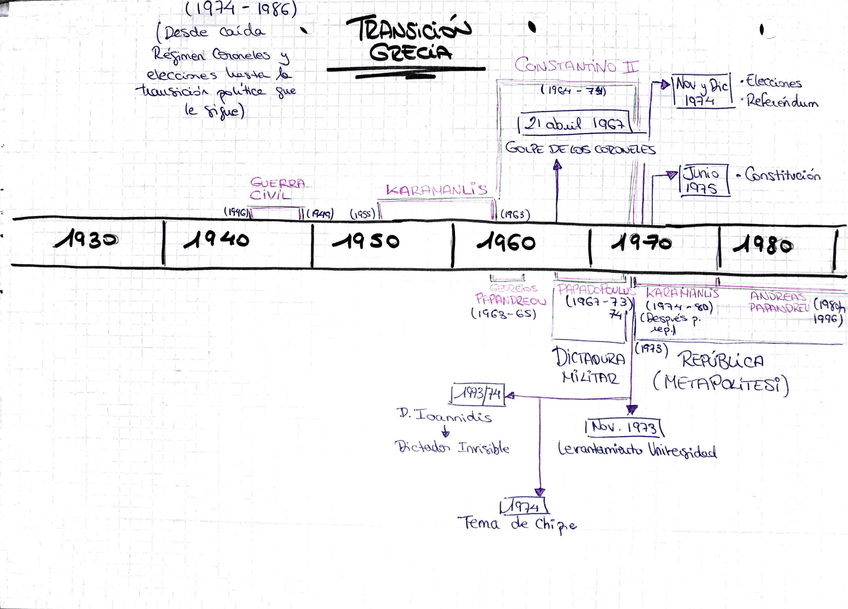 (1974 - 1986)
(Desde caída
Régimen Coroneles y
elecciones hasta la
transición política que
le sigue)
TRANSICIÓN
GRECIA
CONSTANTINO II
(1964 - 73)
21 abril 1967
GOLPE DE LOS CORONELES
Nov y Dic
1974
· Elecciones
· Referéndum
Junio
1975
· Constitución
GUERRA
CIVIL
(1946)
(1949)
KARAMANLIS
(1955)
(1963)
1930
1940
1950
1960
1970
1980
GEORGIOS
PAPANDREOU
(1963-65)
PAPADOPOULUS
(1967-73)
74
KARAMANLIS
(1974-80)
(Después p.
rep.)
ANDREAS
PAPANDREU
1996)
DICTADURA
MILITAR
(1973)
REPÚBLICA
(METAPOLITESI)
1973/74
D. Ioannidis
Dictador Invisible
Nov. 1973
Levantamiento Universidad
1974
Tema de Chipre